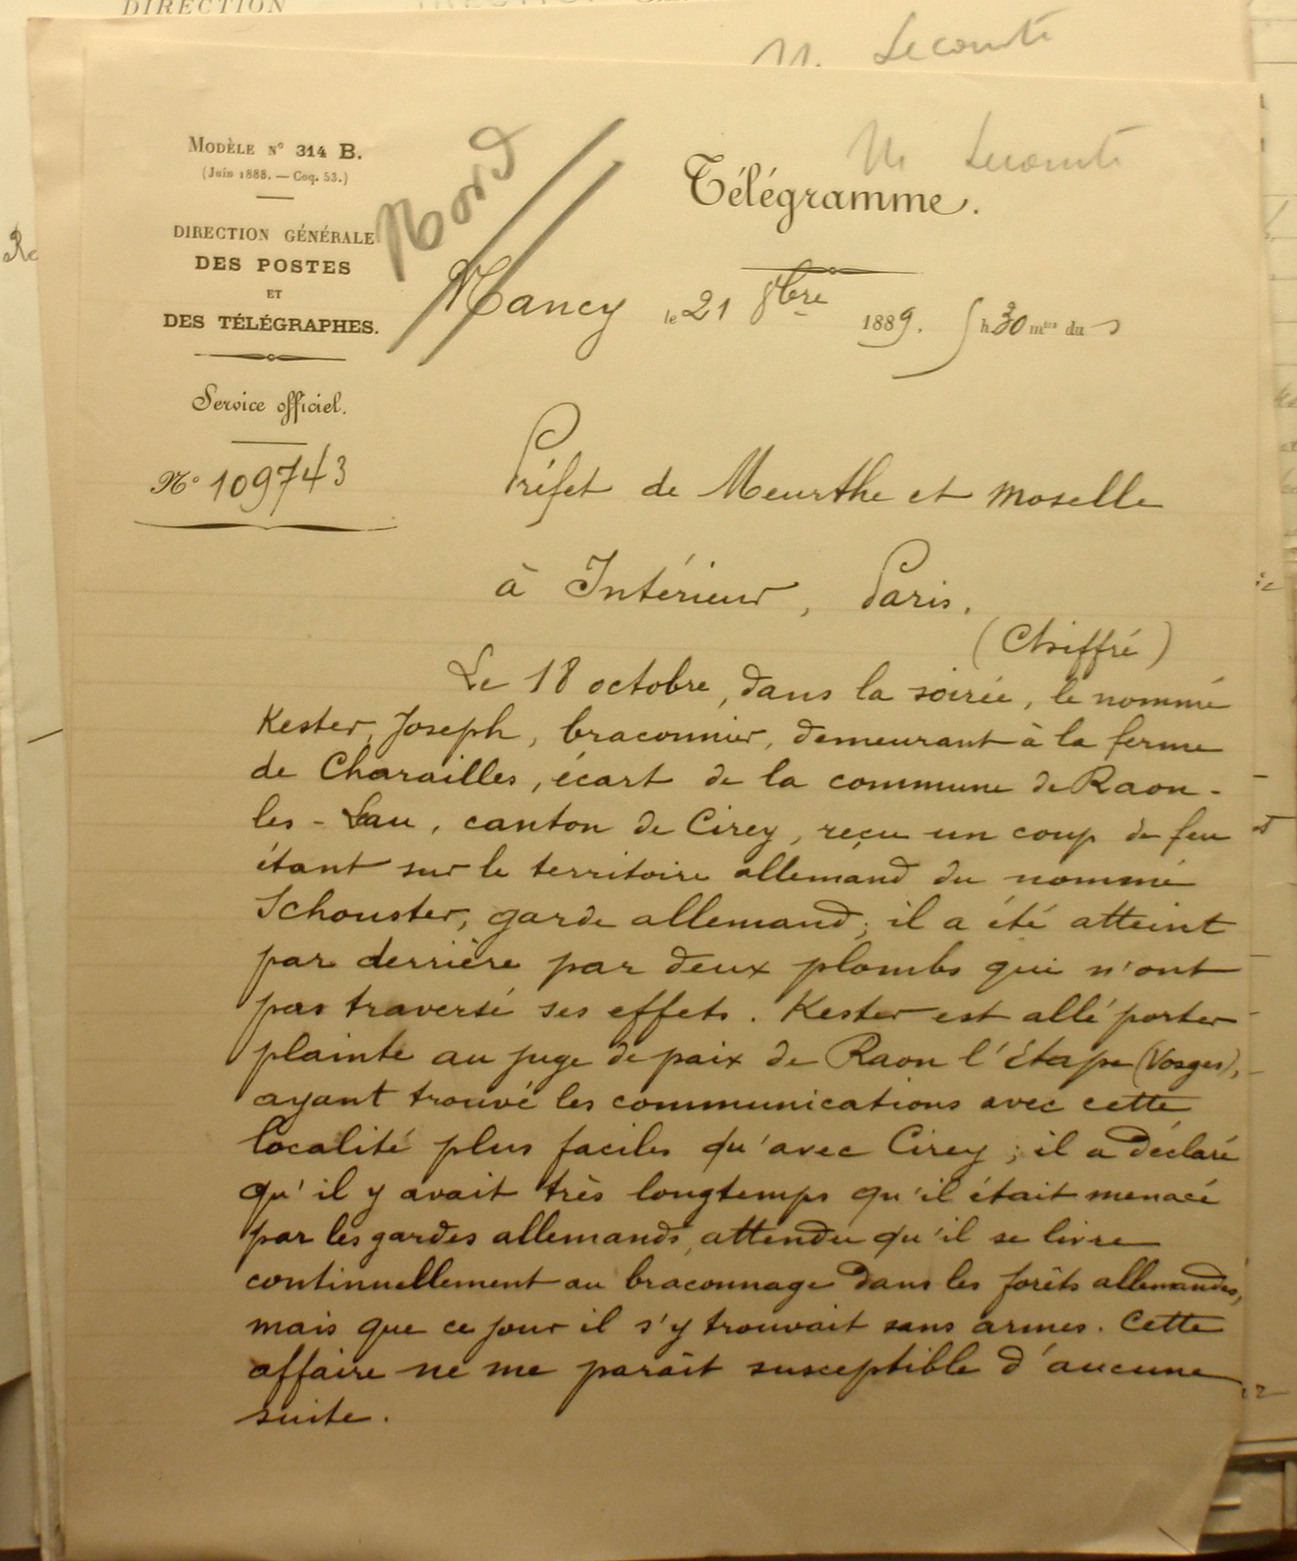 DIRECTION
M. Lecomte
M Lecomte
MODÈLE N° 314 B.
(Juin 1888. — Coq. 53.)
Nord
Télégramme.
DIRECTION GÉNÉRALE
DES POSTES
ET
DES TÉLÉGRAPHES.
Nancy le 21 8bre 1889. 5 h 30 mtes du s
Service officiel.
N° 109743
Préfet de Meurthe et Moselle
à Intérieur, Paris.
(Chiffré)
Le 18 octobre, dans la soirée, le nommé
Kester, Joseph, braconnier, demeurant à la ferme
de Charailles, écart de la commune de Raon-
les-Leau, canton de Cirey, reçu un coup de feu
étant sur le territoire allemand du nommé
Schouster, garde allemand; il a été atteint
par derrière par deux plombs qui n'ont
pas traversé ses effets. Kester est allé porter
plainte au juge de paix de Raon l'Étape (Vosges),
ayant trouvé les communications avec cette
localité plus faciles qu'avec Cirey; il a déclaré
qu'il y avait très longtemps qu'il était menacé
par les gardes allemands, attendu qu'il se livre
continuellement au braconnage dans les forêts allemandes,
mais que ce jour il s'y trouvait sans armes. Cette
affaire ne me paraît susceptible d'aucune
suite.